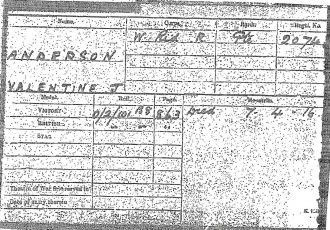 Name. Corps. Rank. Regtl. No.
ANDERSON W. Rid R Pte 2074
VALENTINE J
Medal. Roll. Page. Remarks.
VICTORY 0/2/101 B8 863 Died 7. 4. 16
BRITISH
STAR
Theatre of War first served in
Date of entry therein